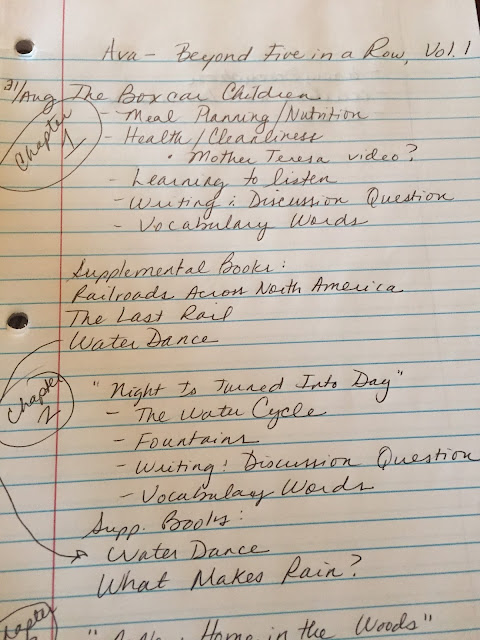 Ava - Beyond Five in a Row, Vol. 1
31/Aug The Boxcar Children
Chapter 1
- Meal Planning/Nutrition
- Health/Cleanliness
• Mother Teresa video?
- Learning to listen
- Writing: Discussion Question
- Vocabulary Words
Supplemental Books:
Railroads Across North America
The Last Rail
Water Dance
Chapter 2
"Night Is Turned Into Day"
- The Water Cycle
- Fountains
- Writing: Discussion Question
- Vocabulary Words
Supp. Books:
Water Dance
What Makes Rain?
Chapter
Home in the Woods"